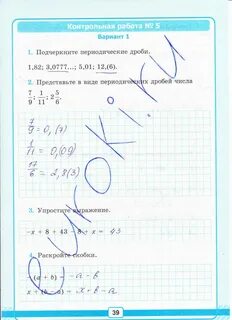 Контрольная работа № 5
Вариант 1
1. Подчеркните периодические дроби.
1,82; 3,0777...; 5,01; 12,(6).
2. Представьте в виде периодических дробей числа
7/9; 1/11; 2 5/6
7/9 = 0,(7)
1/11 = 0,(09)
17/6 = 2,8(3)
3. Упростите выражение.
-x + 8 + 43 - 8 + x = 43
4. Раскройте скобки.
-(a + b) = -a - b
x + (b - a) = x + b - a
39
eurokl.ru